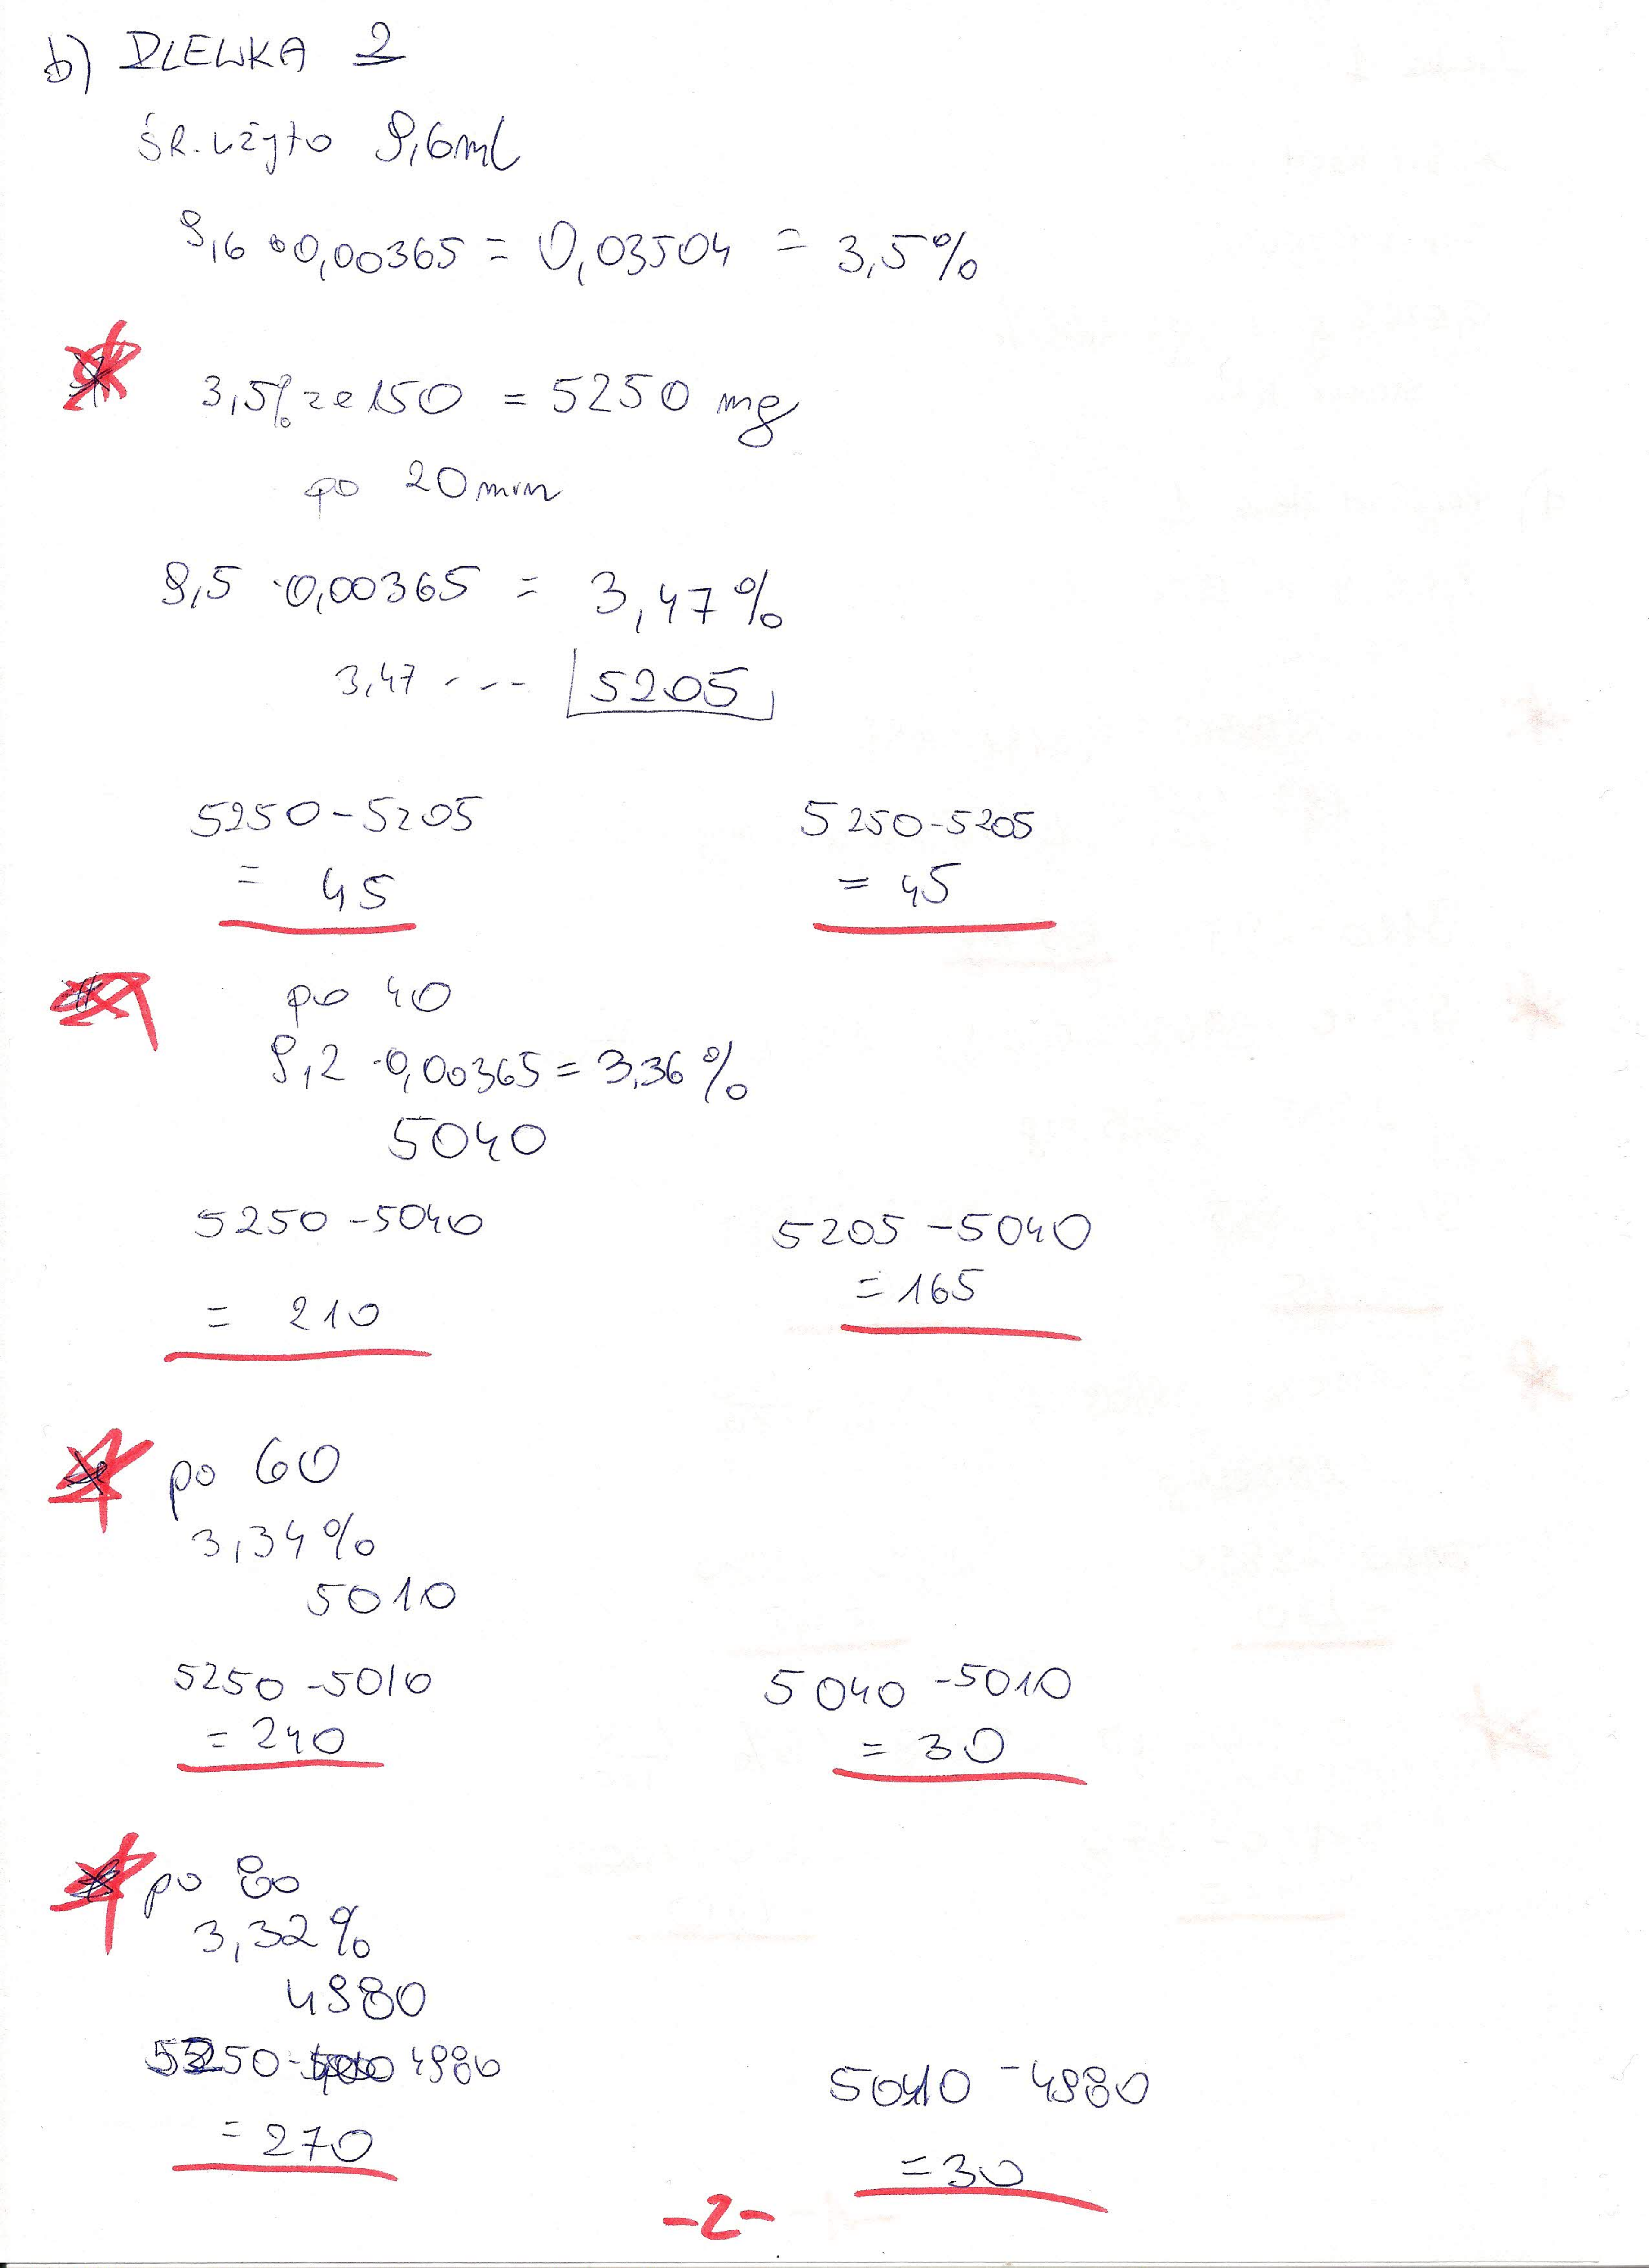 b) ZLEWKA 2
ŚR. użyto 9,6ml
9,6 • 0,00365 = 0,03504 = 3,5%
3,5% ze 150 = 5250 mg
po 20 min
9,5 · 0,00365 = 3,47%
3,47 --- 5205
5250-5205
= 45
5250-5205
= 45
po 40
9,2 · 0,00365 = 3,36%
5040
5250 - 5040
= 210
5205 - 5040
= 165
po 60
3,34%
5010
5250 - 5010
= 240
5040 - 5010
= 30
po 80
3,32%
4980
5250 - 4980
= 270
5010 - 4980
= 30
-2-